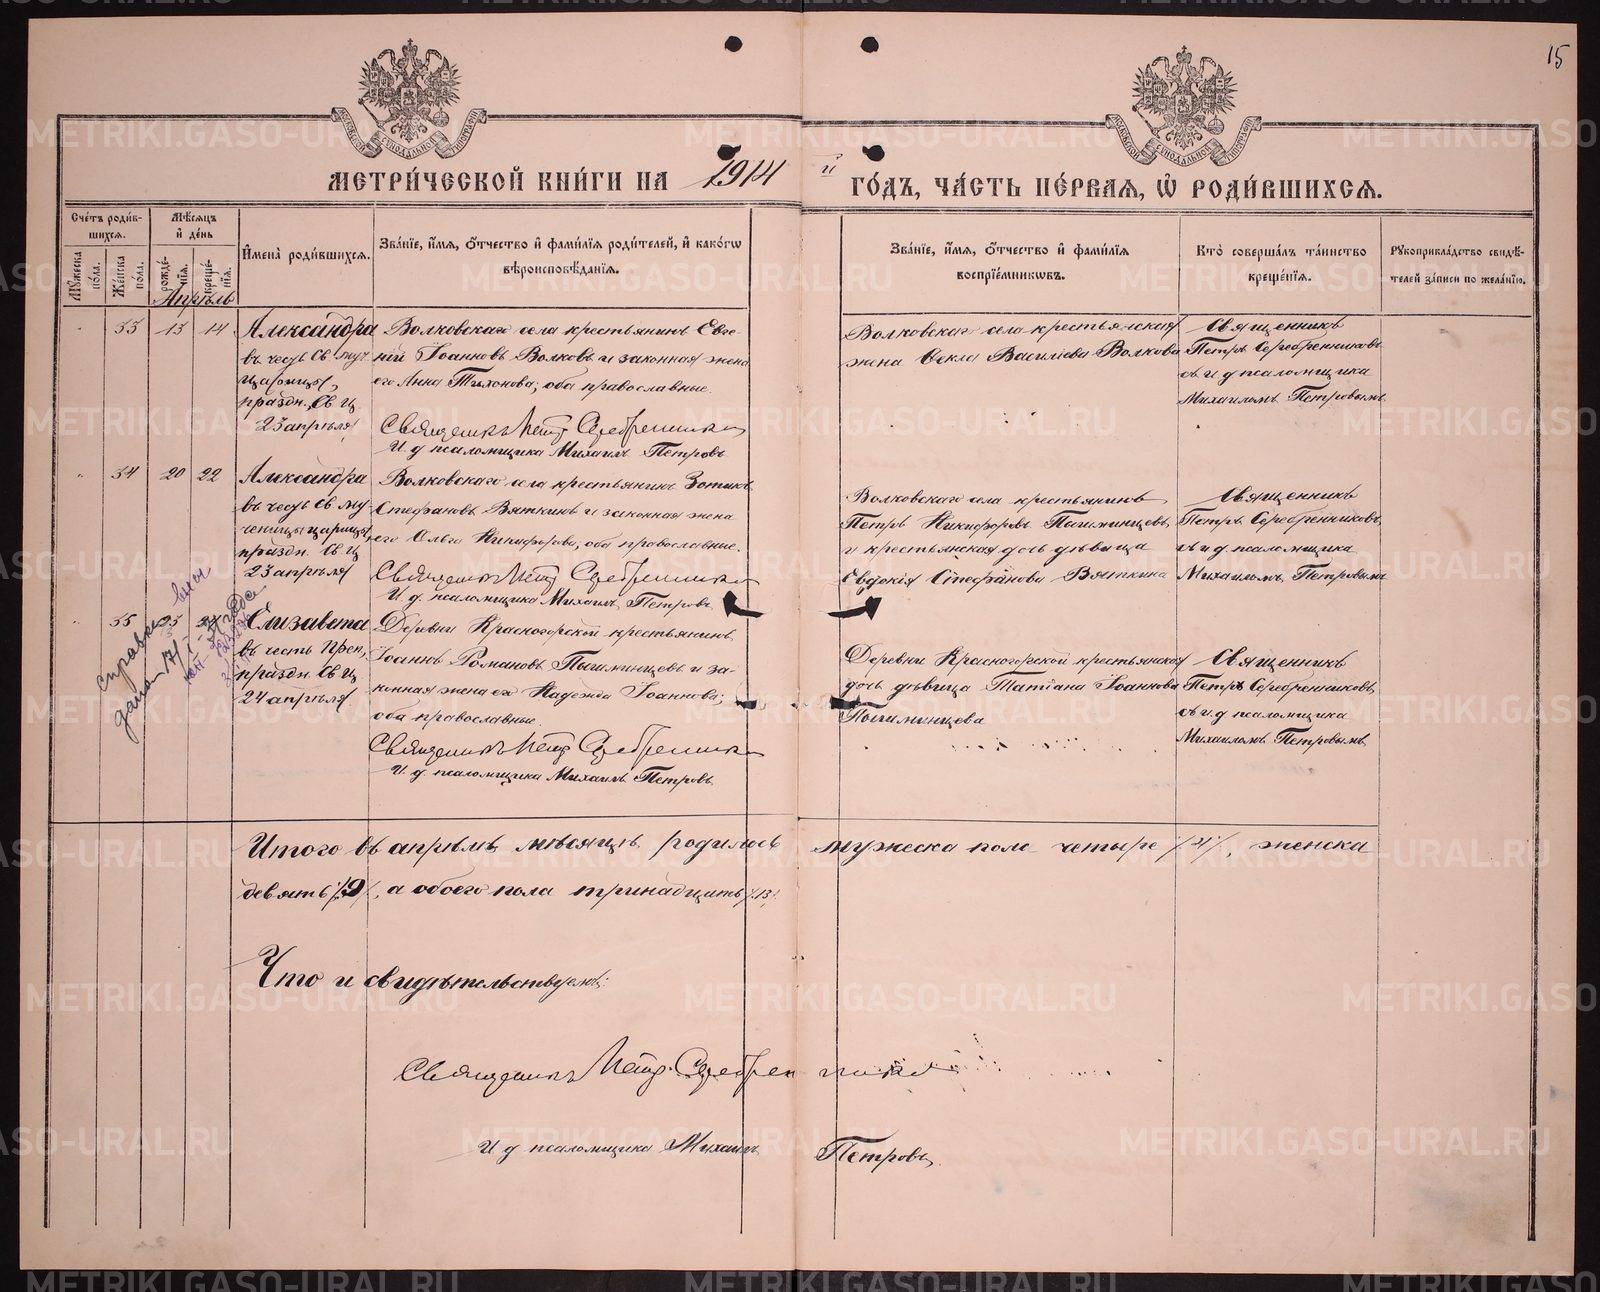 15
МОСКОВСКОЙ СѴНОДАЛЬНОЙ ТИПОГРАФІИ
МОСКОВСКОЙ СѴНОДАЛЬНОЙ ТИПОГРАФІИ
МЕТРИ́ЧЕСКОЙ КНИ́ГИ НА 1914 й ГО́ДЪ, ЧА́СТЬ ПЕ́РВАЯ, Ѡ РОДИ́ВШИХСЯ.
Сче́тъ роди́в-
шихся.
Мꙋжеска по́ла.
Же́нска по́ла.
Мѣ́сяцъ
и҆ де́нь
рожде́-
нїя.
креще́-
нїя.
И҆мена̀ роди́вшихся.
Зва́нїе, и҆́мя, ѻ҆́тчество и҆ фами́лїя роди́телей, и҆ како́гѡ
вѣроисповѣ́данїя.
Зва́нїе, и҆́мя, ѻ҆́тчество и҆ фами́лїя
воспрїе́мникѡвъ.
Кто̀ соверша́лъ та́инство
креще́нїя.
Рꙋкоприкла́дство свидѣ́-
телей за́писи по жела́нїю.
Апрѣль
33 13 14
Александра
въ честь св. муч
царицы,
праздн. Св Ц
23 апрѣля
Волковскаго села крестьянинъ Евге-
ній Іоанновъ Волковъ и законная жена
его Анна Тихонова; оба православные.
Священникъ Петр Серебренников
И. д псаломщика Михаилъ Петровъ
Волковскаго села крестьянская
жена Ѳекла Василіева Волкова
Священникъ
Петръ Серебренниковъ
съ и д псаломщика
Михаиломъ Петровымъ
34 20 22
Александра
въ честь св. му
ченицы царицы,
праздн. Св Ц
23 апрѣля
Волковскаго села крестьянинъ Зотикъ
Стефановъ Вяткинъ и законная жена
его Ольга Никифорова, оба православные.
Священникъ Петр Серебренников
И. д. псаломщика Михаилъ Петровъ
Волковскаго села крестьянинъ
Петръ Никифоровъ Пышминцевъ
и крестьянская дочь дѣвица
Евдокія Стефанова Вяткина
Священникъ
Петръ Серебренниковъ
съ и д. псаломщика
Михаиломъ Петровымъ
35
Елизавета
въ честь преп,
праздн. Св Ц
24 апрѣля
Деревни Красногорской крестьянинъ
Іоаннъ Романовъ Пышминцевъ и за-
конная жена его Надежда Іоаннова;
оба православные.
Священникъ Петр Серебренников
И. д. псаломщика Михаилъ Петровъ
Деревни Красногорской крестьянская
дочь дѣвица Татіана Іоаннова
Пышминцева
Священникъ
Петръ Серебренниковъ
съ и.д псаломщика
Михаиломъ Петровымъ
справка
дана
Итого въ апрѣлѣ мѣсяцѣ родилось мужеска пола четыре /4/, женска
девять /9/, а обоего пола тринадцать /13/
Что и свидѣтельствуемъ:
Священникъ Петр. Серебренников
И д псаломщика Михаилъ Петровъ
METRIKI.GASO-URAL.RU